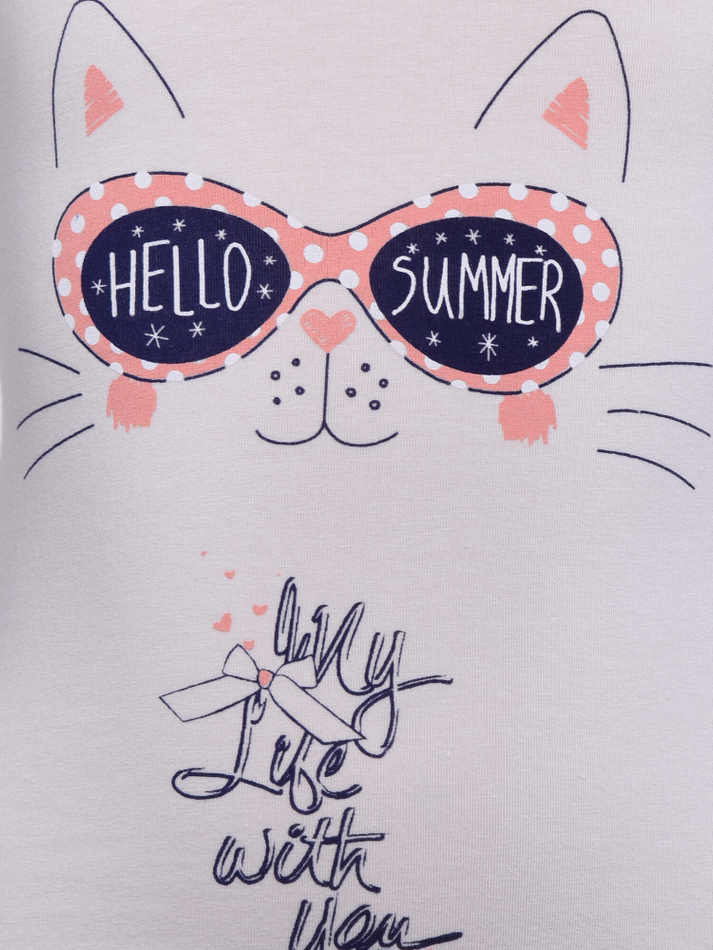 HELLO SUMMER
My
Life
with
you